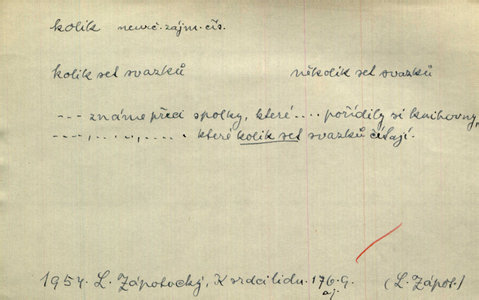 kolik neurč. zájm. čís.
kolik set svazků několik set svazků
--- známe přeci spolky, které .... pořídily si knihovny,
---, ....., ..... které kolik set svazků čítají.
1954. L. Zápotocký, K srdci lidu. 176.9. (L. Zápot.)
aj.